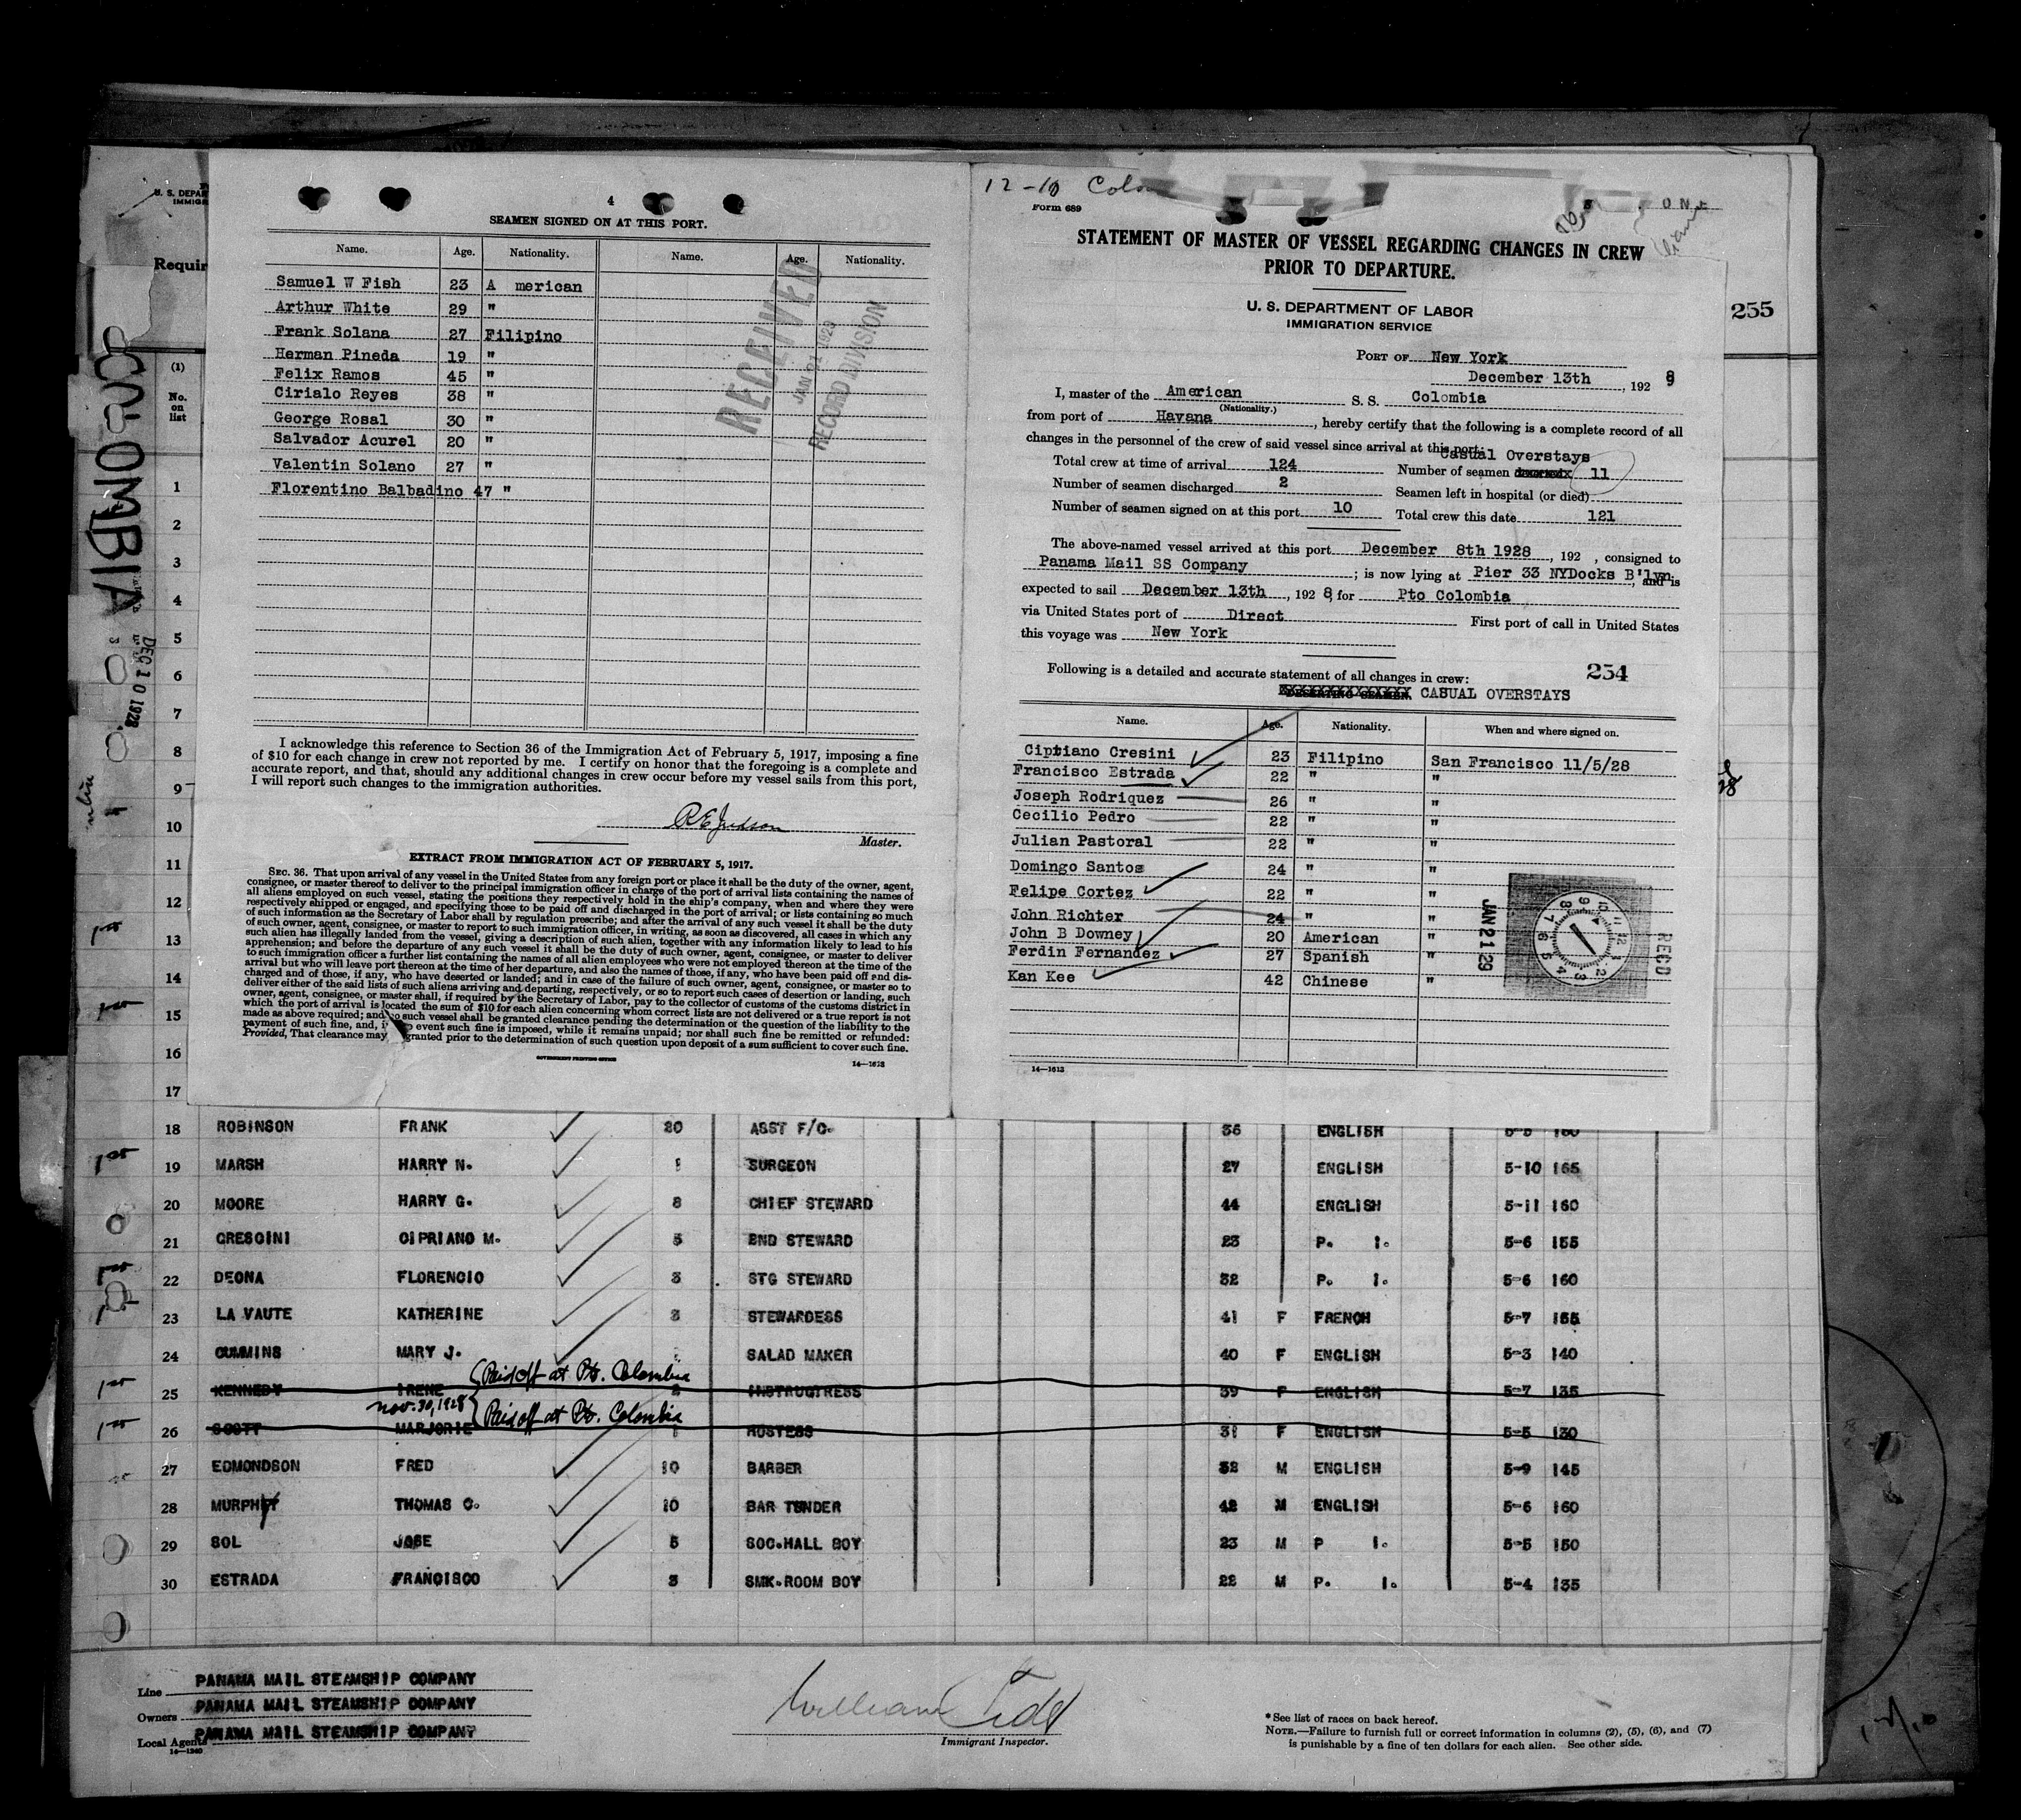 U. S. DEPAR
IMMIGR
Requir
(1)
No.
on
list
COLOMBIA
DEC 10 1928
4
SEAMEN SIGNED ON AT THIS PORT.
Name. Age. Nationality. Name. Age. Nationality.
Samuel W Fish 23 A merican
Arthur White 29 "
Frank Solana 27 Filipino
Herman Pineda 19 "
Felix Ramos 45 "
Cirialo Reyes 38 "
George Rosal 30 "
Salvador Acurel 20 "
Valentin Solano 27 "
Florentino Balbadino 47 "
RECEIVED
JAN 21 1929
RECORD DIVISION
I acknowledge this reference to Section 36 of the Immigration Act of February 5, 1917, imposing a fine
of $10 for each change in crew not reported by me. I certify on honor that the foregoing is a complete and
accurate report, and that, should any additional changes in crew occur before my vessel sails from this port,
I will report such changes to the immigration authorities.
R E Judson
Master.
EXTRACT FROM IMMIGRATION ACT OF FEBRUARY 5, 1917.
SEC. 36. That upon arrival of any vessel in the United States from any foreign port or place it shall be the duty of the owner, agent,
consignee, or master thereof to deliver to the principal immigration officer in charge of the port of arrival lists containing the names of
all aliens employed on such vessel, stating the positions they respectively hold in the ship's company, when and where they were
respectively shipped or engaged, and specifying those to be paid off and discharged in the port of arrival; or lists containing so much
of such information as the Secretary of Labor shall by regulation prescribe; and after the arrival of any such vessel it shall be the duty
of such owner, agent, consignee, or master to report to such immigration officer, in writing, as soon as discovered, all cases in which any
such alien has illegally landed from the vessel, giving a description of such alien, together with any information likely to lead to his
apprehension; and before the departure of any such vessel it shall be the duty of such owner, agent, consignee, or master to deliver
to such immigration officer a further list containing the names of all alien employees who were not employed thereon at the time of the
arrival but who will leave port thereon at the time of her departure, and also the names of those, if any, who have been paid off and dis-
charged and of those, if any, who have deserted or landed; and in case of the failure of such owner, agent, consignee, or master so to
deliver either of the said lists of such aliens arriving and departing, respectively, or so to report such cases of desertion or landing, such
owner, agent, consignee, or master shall, if required by the Secretary of Labor, pay to the collector of customs of the customs district in
which the port of arrival is located the sum of $10 for each alien concerning whom correct lists are not delivered or a true report is not
made as above required; and no such vessel shall be granted clearance pending the determination of the question of the liability to the
payment of such fine, and, i event such fine is imposed, while it remains unpaid; nor shall such fine be remitted or refunded:
Provided, That clearance may granted prior to the determination of such question upon deposit of a sum sufficient to cover such fine.
GOVERNMENT PRINTING OFFICE
14—1613
12-10 Colo
Form 689
STATEMENT OF MASTER OF VESSEL REGARDING CHANGES IN CREW
PRIOR TO DEPARTURE.
U. S. DEPARTMENT OF LABOR
IMMIGRATION SERVICE
255
PORT OF New York
December 13th, 192 8
I, master of the American S. S. Colombia
(Nationality.)
from port of Havana, hereby certify that the following is a complete record of all
changes in the personnel of the crew of said vessel since arrival at this port:
Casual Overstays
Total crew at time of arrival 124 Number of seamen 11
Number of seamen discharged 2 Seamen left in hospital (or died)
Number of seamen signed on at this port 10 Total crew this date 121
The above-named vessel arrived at this port December 8th 1928, 192 , consigned to
Panama Mail SS Company; is now lying at Pier 33 NYDocks B'lyn, and is
expected to sail December 13th, 192 8, for Pto Colombia
via United States port of Direct First port of call in United States
this voyage was New York
Following is a detailed and accurate statement of all changes in crew: 254
DESERTING SEAMEN. CASUAL OVERSTAYS
Name. Age. Nationality. When and where signed on.
Cipriano Cresini 23 Filipino San Francisco 11/5/28
Francisco Estrada 22 " "
Joseph Rodriquez 26 " "
Cecilio Pedro 22 " "
Julian Pastoral 22 " "
Domingo Santos 24 " "
Felipe Cortez 22 " "
John Richter 24 " "
John B Downey 20 American "
Ferdin Fernandez 27 Spanish "
Kan Kee 42 Chinese "
JAN 21 29
RECD
14—1613
1
2
3
4
5
6
7
8
9
10
11
12
13
14
15
16
17
18 ROBINSON FRANK 20 ASST F/C. 36 ENGLISH 5-5 160
19 MARSH HARRY N. 1 SURGEON 27 ENGLISH 5-10 165
20 MOORE HARRY G. 8 CHIEF STEWARD 44 ENGLISH 5-11 160
21 CRESCINI CIPRIANO M. 5 2ND STEWARD 23 P. I. 5-6 155
22 DEONA FLORENCIO 3 STG STEWARD 32 P. I. 5-6 160
23 LA VAUTE KATHERINE 3 STEWARDESS 41 F FRENCH 5-7 155
24 CUMMINS MARY J. SALAD MAKER 40 F ENGLISH 5-3 140
(Paid off at Pto. Colombia
25 KENNEDY IRENE 2 INSTRUCTRESS 39 F ENGLISH 5-7 135
Nov. 30, 1928 Paid off at Pto. Colombia
26 SCOTT MARJORIE 1 HOSTESS 31 F ENGLISH 5-5 130
27 EDMONDSON FRED 10 BARBER 32 M ENGLISH 5-9 145
28 MURPHY THOMAS C. 10 BAR TENDER 42 M ENGLISH 5-6 160
29 SOL JOSE 5 SOC.HALL BOY 23 M P I. 5-5 150
30 ESTRADA FRANCISCO 3 SMK.ROOM BOY 22 M P. I. 5-4 135
Line PANAMA MAIL STEAMSHIP COMPANY
Owners PANAMA MAIL STEAMSHIP COMPANY
Local Agents PANAMA MAIL STEAMSHIP COMPANY
14—1240
William
Immigrant Inspector.
*See list of races on back hereof.
NOTE.—Failure to furnish full or correct information in columns (2), (5), (6), and (7)
is punishable by a fine of ten dollars for each alien. See other side.